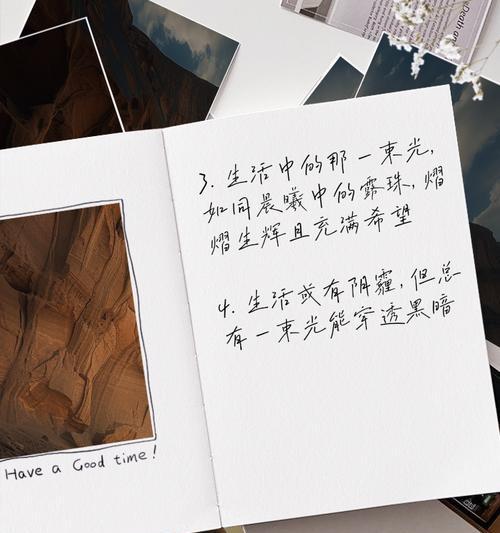 Have a Good time!
3. 生活中的那一束光,
如同晨曦中的露珠,熠
熠生辉且充满希望
4. 生活或有阴霾,但总
有一束光能穿透黑暗